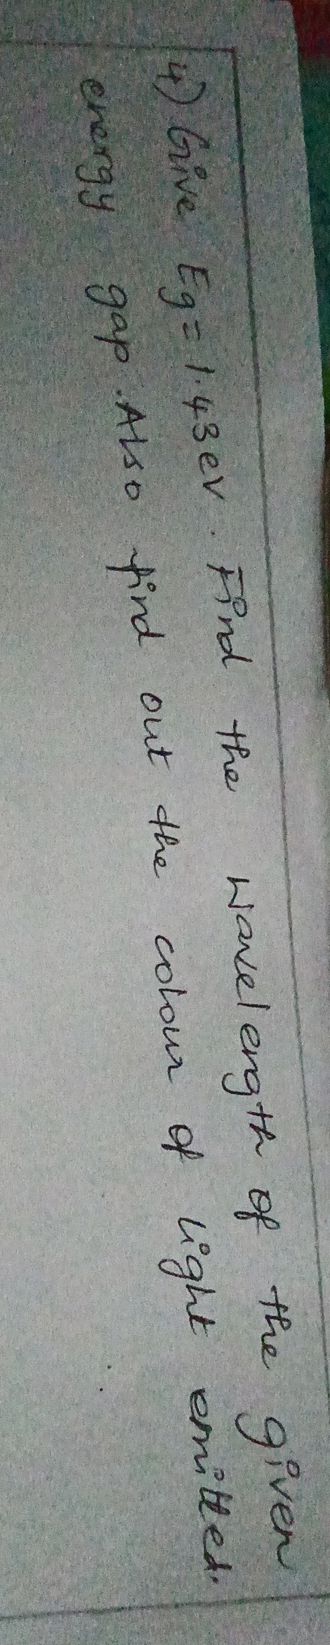 4) Give Eg = 1.43eV. Find the wavelength of the given
energy gap. Also find out the colour of light emitted.